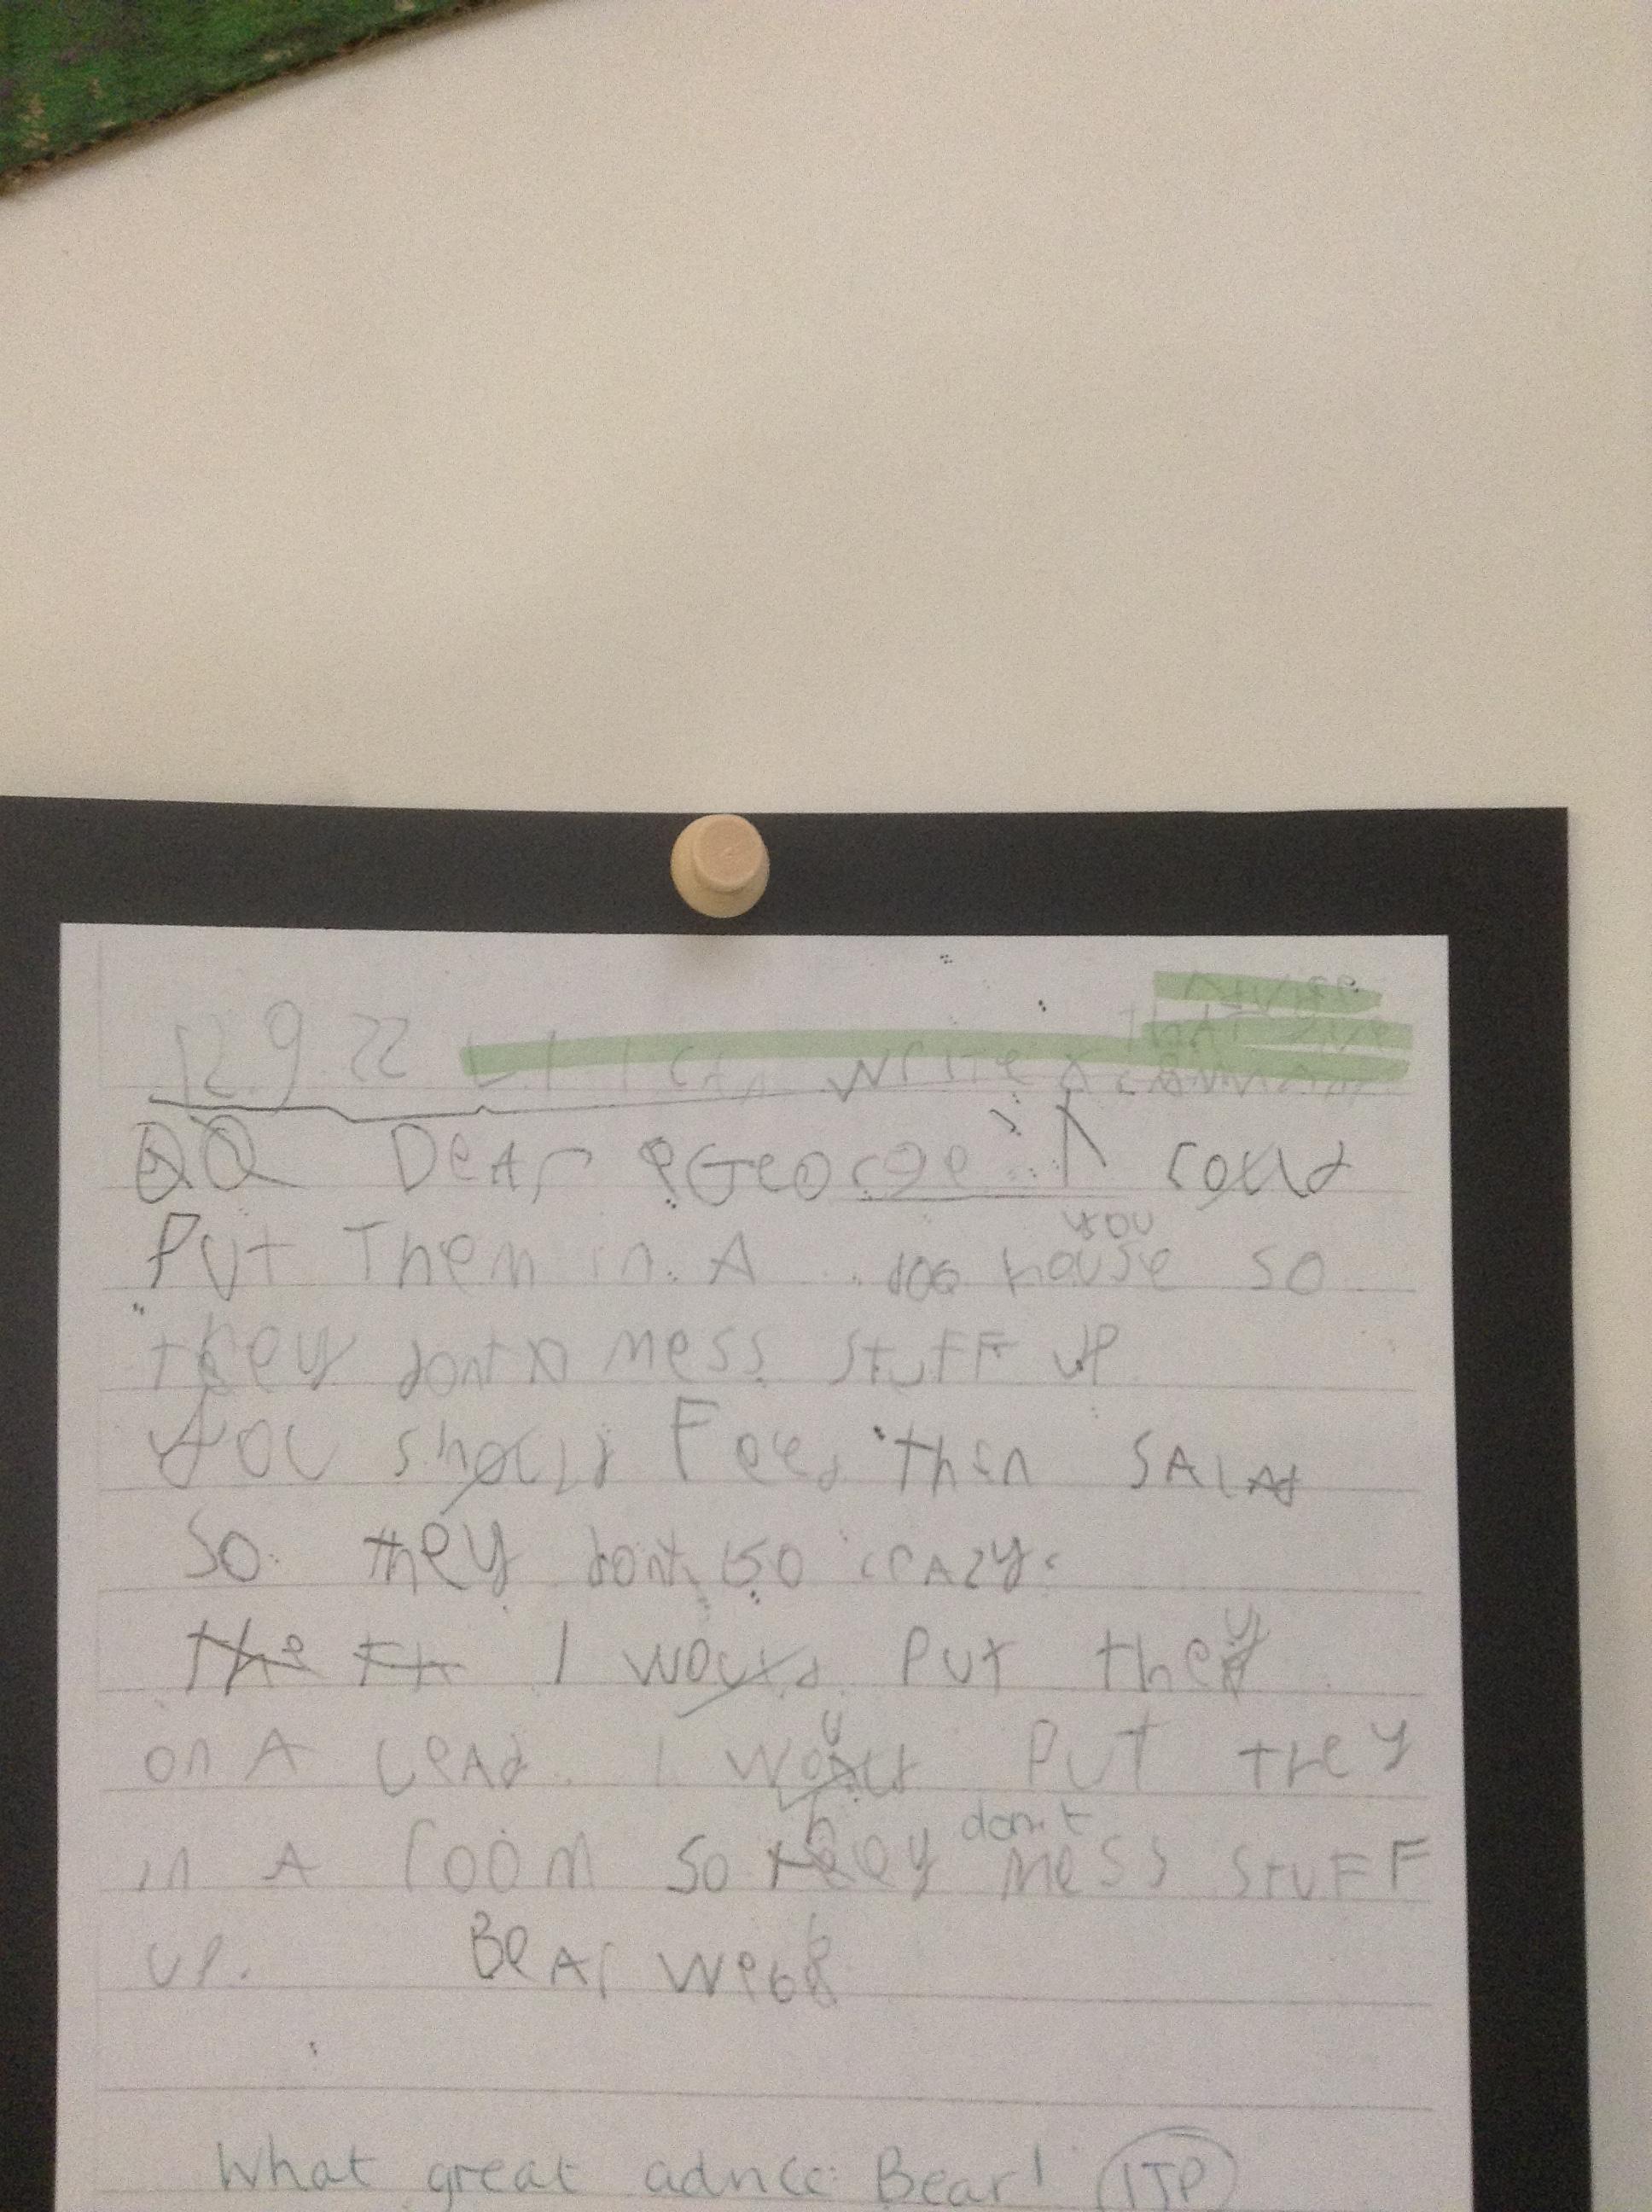 12.9.22 L.I I can write a
that give
Dear George I could
you
Put Them in A dog house so
they dont mess stuFF up
you should Feed them SALAd
So they dont Go crAzy.
I would Put they
on A LeAd. I would PUT they
don't
in A room so they mess stuFF
up. BeAr weBB
What great advice Bear! ITP